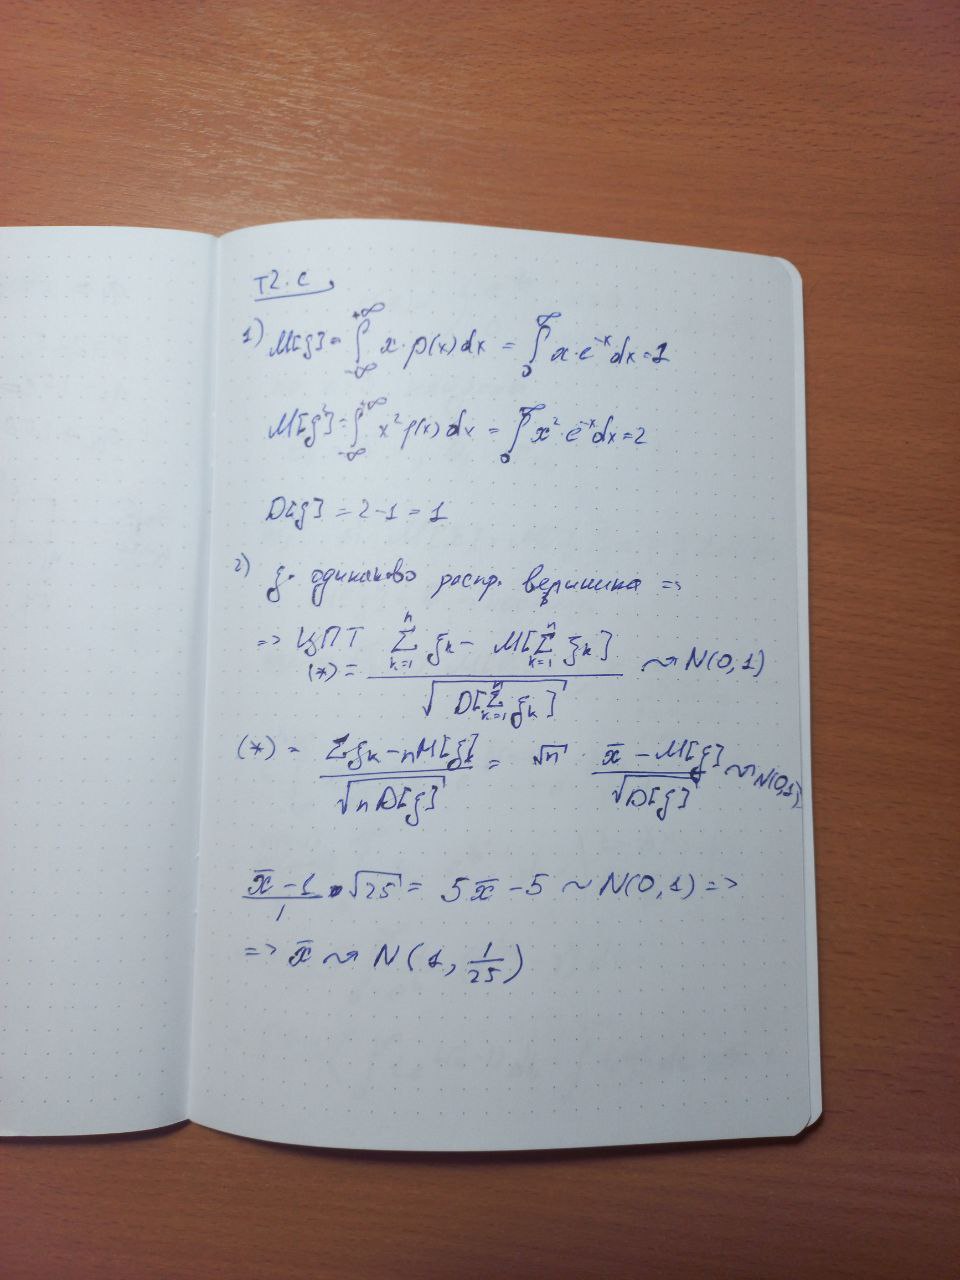 T2. c
1) M[ξ] = ∫_{-∞}^{+∞} x · p(x) dx = ∫_0^∞ x · e^{-x} dx = 1
M[ξ²] = ∫_{-∞}^{+∞} x² p(x) dx = ∫_0^∞ x² · e^{-x} dx = 2
D[ξ] = 2 - 1 = 1
2) ξ · одинаково распр. =>
=> ЦПТ (*) = (∑_{k=1}^n ξ_k - M[∑_{k=1}^n ξ_k]) / √(D[∑_{k=1}^n ξ_k]) ⇝ N(0, 1)
(*) = (∑ξ_k - nM[ξ]) / √(n D[ξ]) = √n (x̄ - M[ξ]) / √(D[ξ]) ⇝ N(0,1)
(x̄ - 1) / 1 · √25 = 5x̄ - 5 ~ N(0, 1) =>
=> x̄ ⇝ N(1, 1/25)